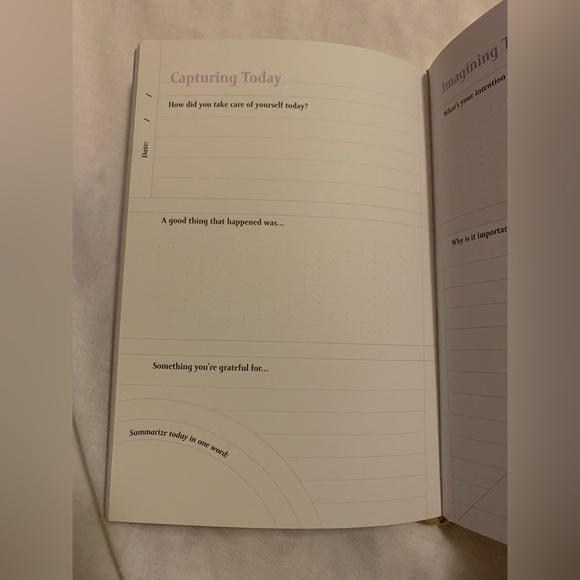 Capturing Today
Date: / /
How did you take care of yourself today?
A good thing that happened was...
Something you're grateful for...
Summarize today in one word:
Imagining
What's your intention
Why is it